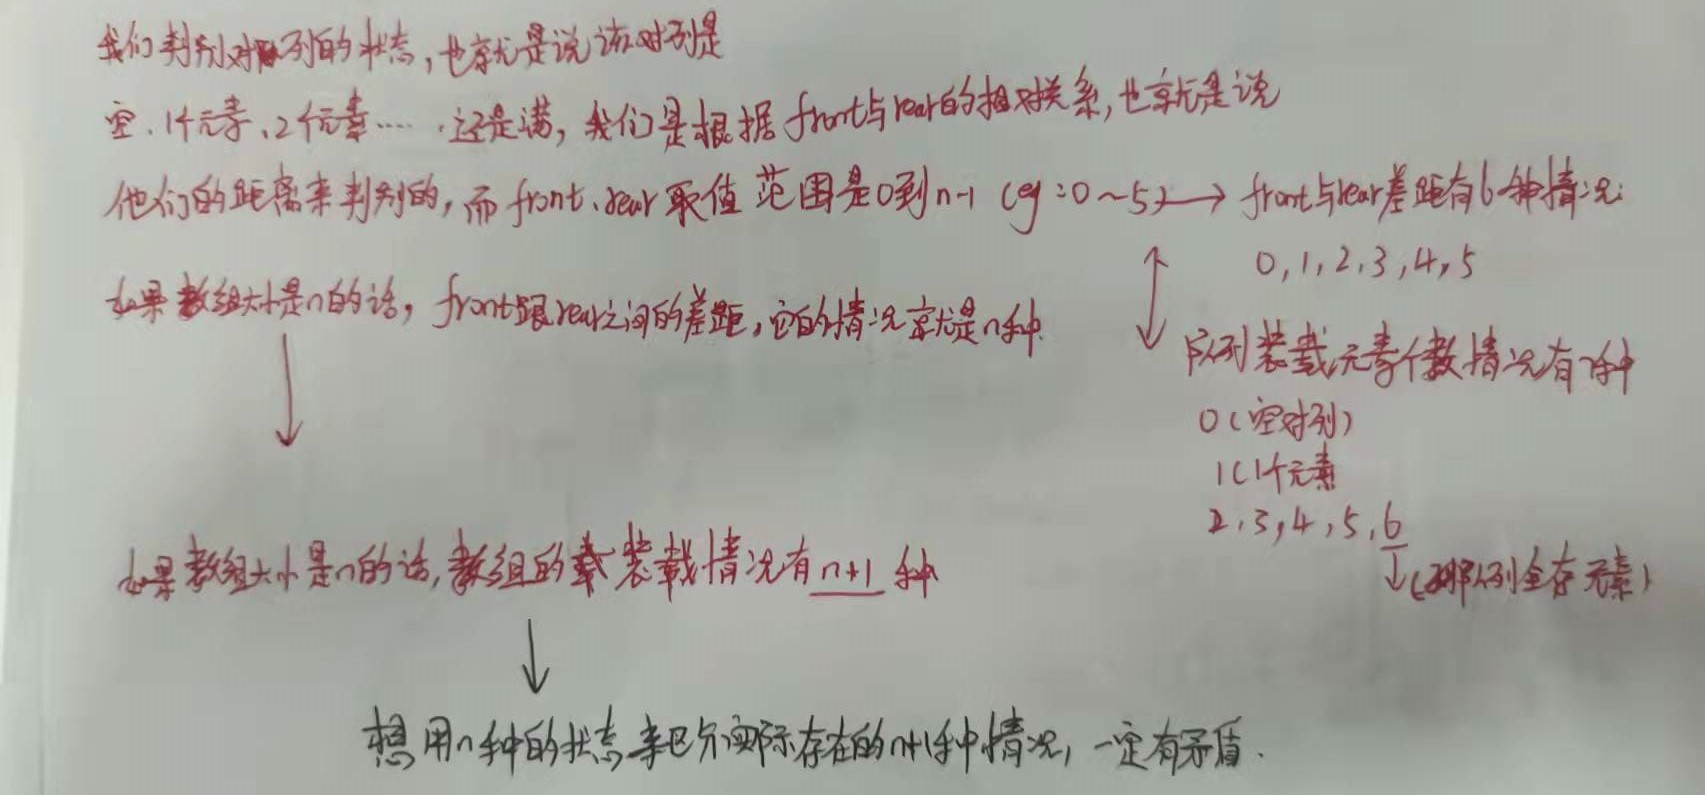 我们判别对队列的状态，也就是说该对列是
空、1个元素、2个元素……还是满，我们是根据front与rear的相对关系，也就是说
他们的距离来判别的，而front、rear取值范围是0到n-1（eg：0~5）→ front与rear差距有6种情况：
0,1,2,3,4,5
如果数组大小是n的话，front跟rear之间的差距，它的情况就是n种.
队列装载元素个数情况有7种
0（空对列）
1（1个元素
2,3,4,5,6
↓（队列全存元素）
如果数组大小是n的话，数组的装载情况有n+1种
想用n种的状态来区分实际存在的n+1种情况，一定有矛盾.